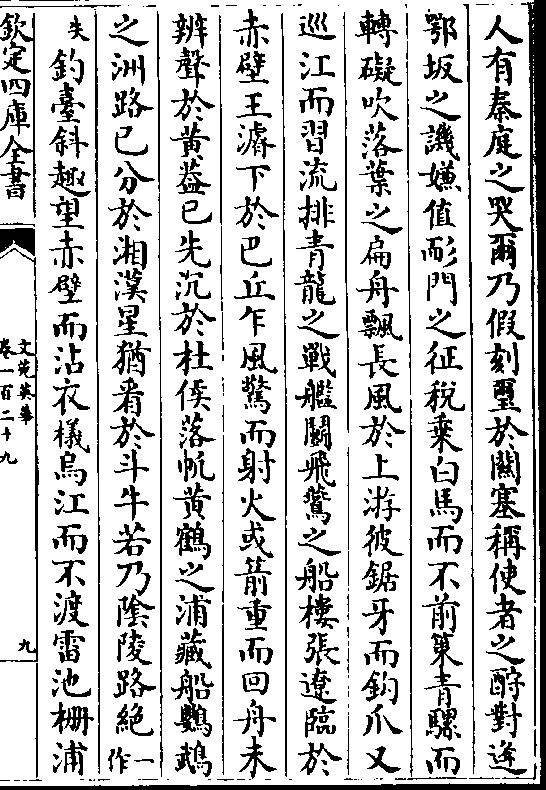 人有秦庭之哭爾乃假刻璽於關塞稱使者之酧對逢
鄂坂之譏嫌值耏門之征税乗白馬而不前䇿青騾而
轉礙吹落葉之扁舟飄長風於上游彼鋸牙而鈎爪又
巡江而習流排青龍之戰艦鬬飛鷰之船樓張遼臨於
赤壁王濬下於巴丘乍風驚而射火或箭重而回舟未
辨聲於黄葢已先沉於杜侯落帆黄鶴之浦藏船鸚鵡
之洲路已分於湘漢星猶看於斗牛若乃隂陵路絶一作
失釣臺斜趣望赤壁而沾衣檥烏江而不渡雷池柵浦
欽定四庫全書
文苑英華
卷一百二十九
九